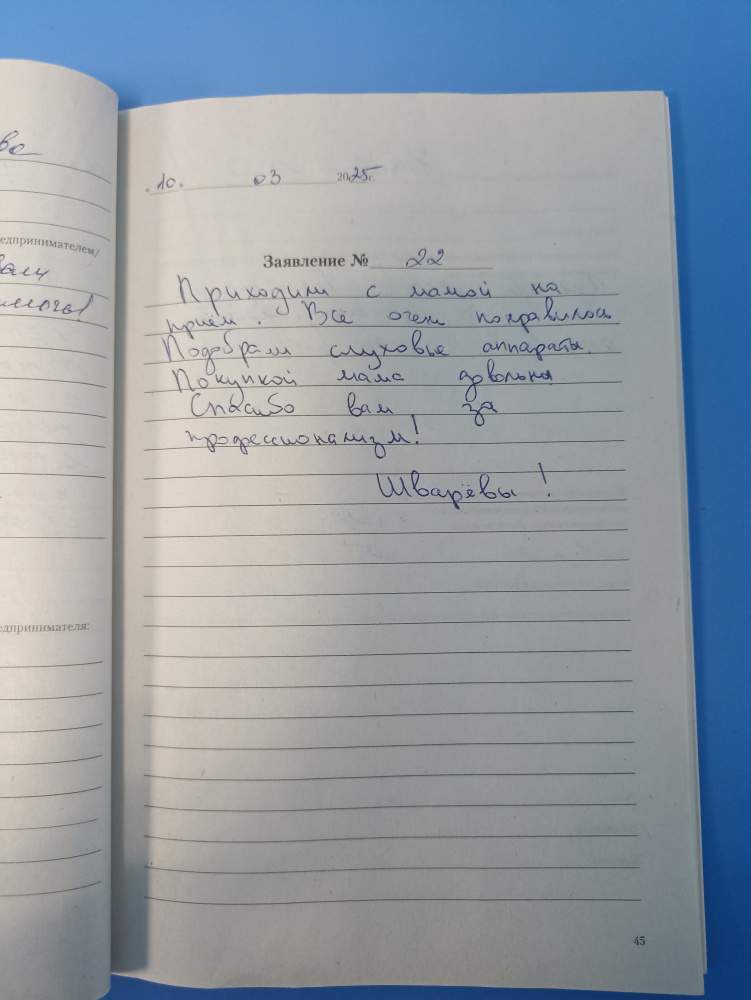 едпринимателем/
едпринимателя:
10. 03 2025г.
Заявление № 22
Приходили с мамой на
приём. Всё очень понравилось
Подобрали слуховые аппараты.
Покупкой мама довольна
Спасибо вам за
профессионализм!
Шварёвы!
45